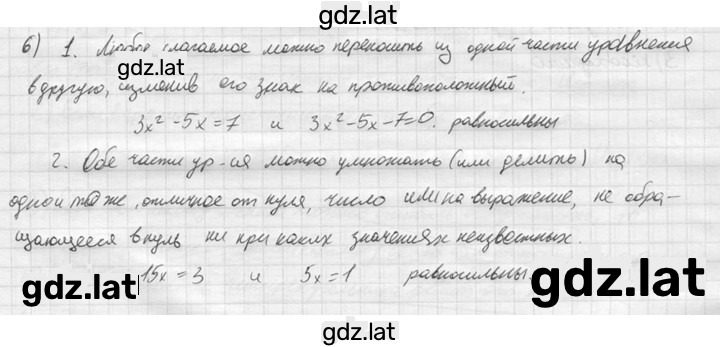 gdz.lat
б) 1. Любое слагаемое можно переносить из одной части уравнения
gdz.lat
в другую, изменив его знак на противоположный.
3x² -5x =7 и 3x²-5x-7=0. равносильны
2. Обе части ур-ия можно умножать (или делить) на
одно и то же, отличное от нуля, число или на выражение, не обра-
щающееся в нуль ни при каких значениях неизвестных.
15x = 3 и 5x = 1 равносильны
gdz.lat
gdz.lat
gdz.lat